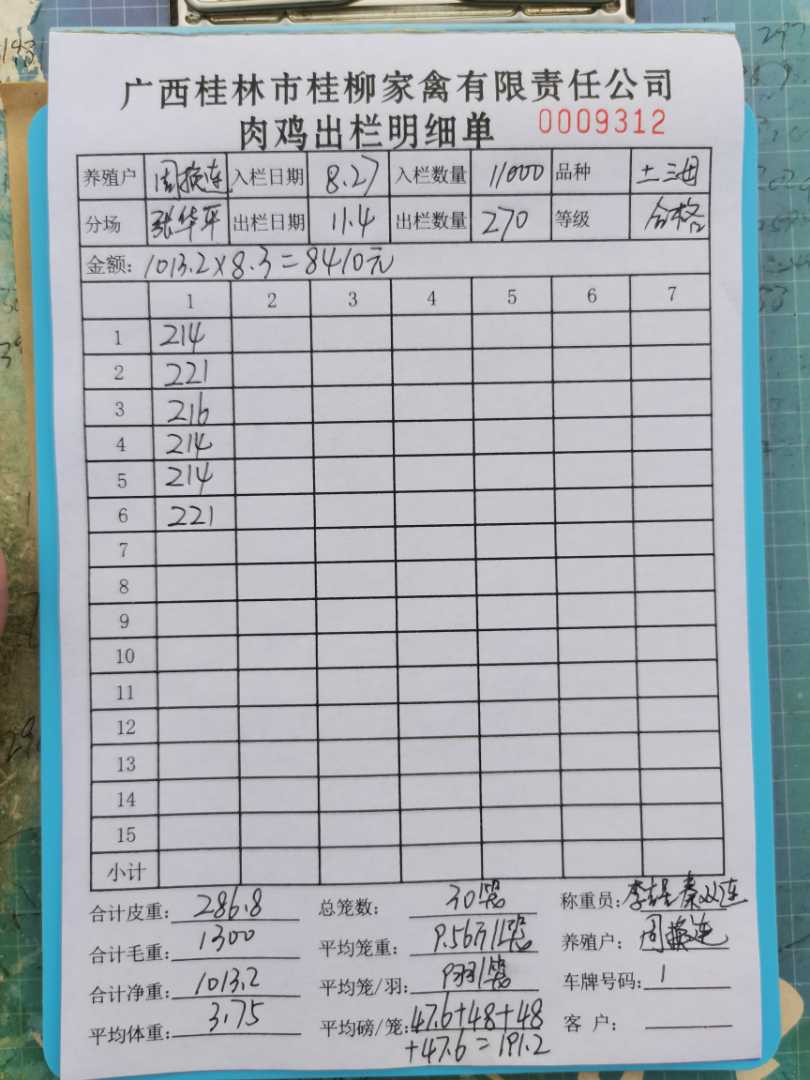 广西桂林市桂柳家禽有限责任公司
肉鸡出栏明细单 0009312
养殖户 周换连 入栏日期 8.27 入栏数量 11000 品种 土三母
分场 张华平 出栏日期 11.4 出栏数量 270 等级 合格
金额: 1013.2×8.3=8410元
1 2 3 4 5 6 7
1 214
2 221
3 216
4 214
5 214
6 221
7
8
9
10
11
12
13
14
15
小计
合计皮重: 286.8 总笼数: 30笼 称重员: 秦双连
合计毛重: 1300 平均笼重: 9.56斤/1笼 养殖户: 周换连
合计净重: 1013.2 平均笼/羽: 9羽/笼 车牌号码: 1
平均体重: 3.75 平均磅/笼: 47.6+48+48 客 户:
+47.6=191.2